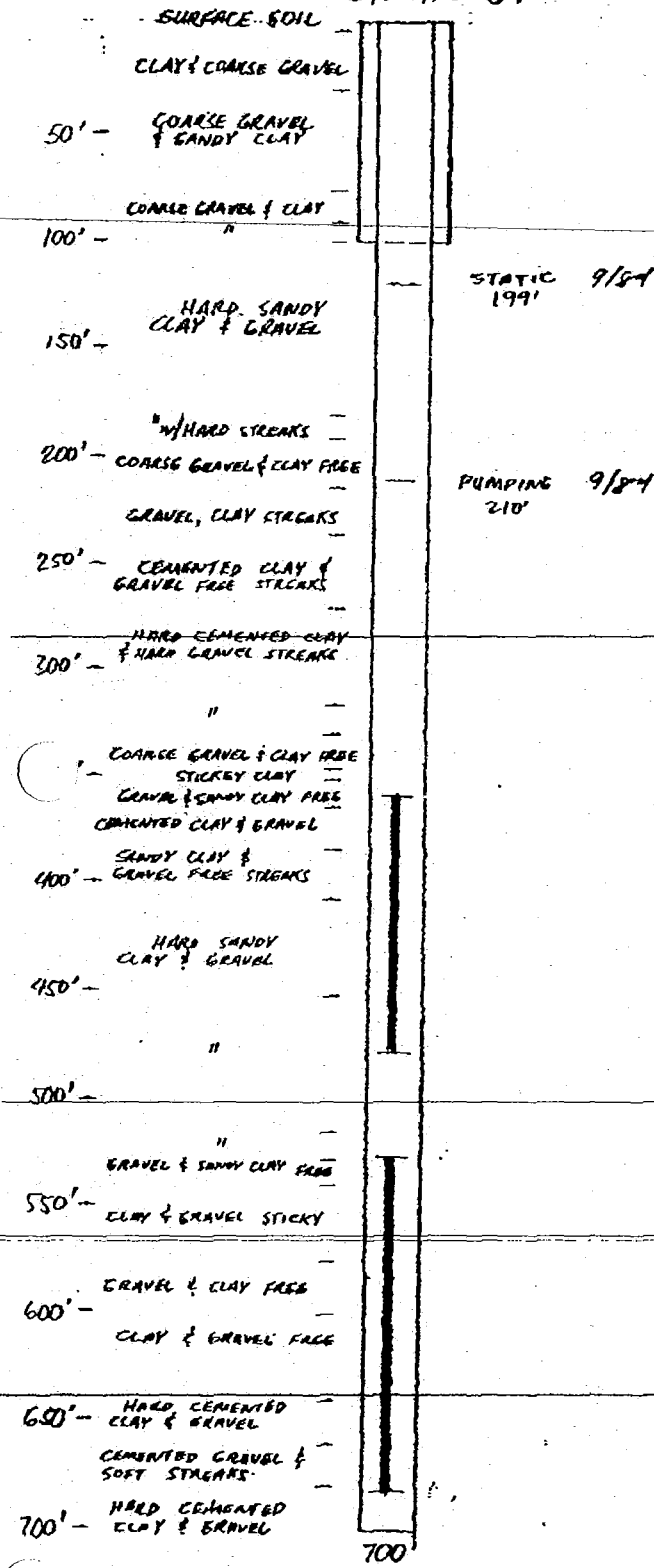 SURFACE SOIL
CLAY & COARSE GRAVEL
50' - COARSE GRAVEL
& SANDY CLAY
COARSE GRAVEL & CLAY
100' - "
STATIC 9/84
199'
HARD SANDY
CLAY & GRAVEL
150' -
" W/HARD STREAKS
200' - COARSE GRAVEL & CLAY FREE
PUMPING 9/84
210'
GRAVEL, CLAY STREAKS
250' - CEMENTED CLAY &
GRAVEL FREE STREAKS
HARD CEMENTED CLAY
300' - & HARD GRAVEL STREAKS
"
COARSE GRAVEL & CLAY FREE
' - STICKEY CLAY
GRAVEL & SANDY CLAY FREE
CEMENTED CLAY & GRAVEL
SANDY CLAY &
400' - GRAVEL FREE STREAKS
HARD SANDY
CLAY & GRAVEL
450' -
"
500' -
"
GRAVEL & SANDY CLAY FREE
550' - CLAY & GRAVEL STICKY
GRAVEL & CLAY FREE
600' -
CLAY & GRAVEL FREE
650' - HARD CEMENTED
CLAY & GRAVEL
CEMENTED GRAVEL &
SOFT STREAKS.
700' - HARD CEMENTED
CLAY & GRAVEL
700'